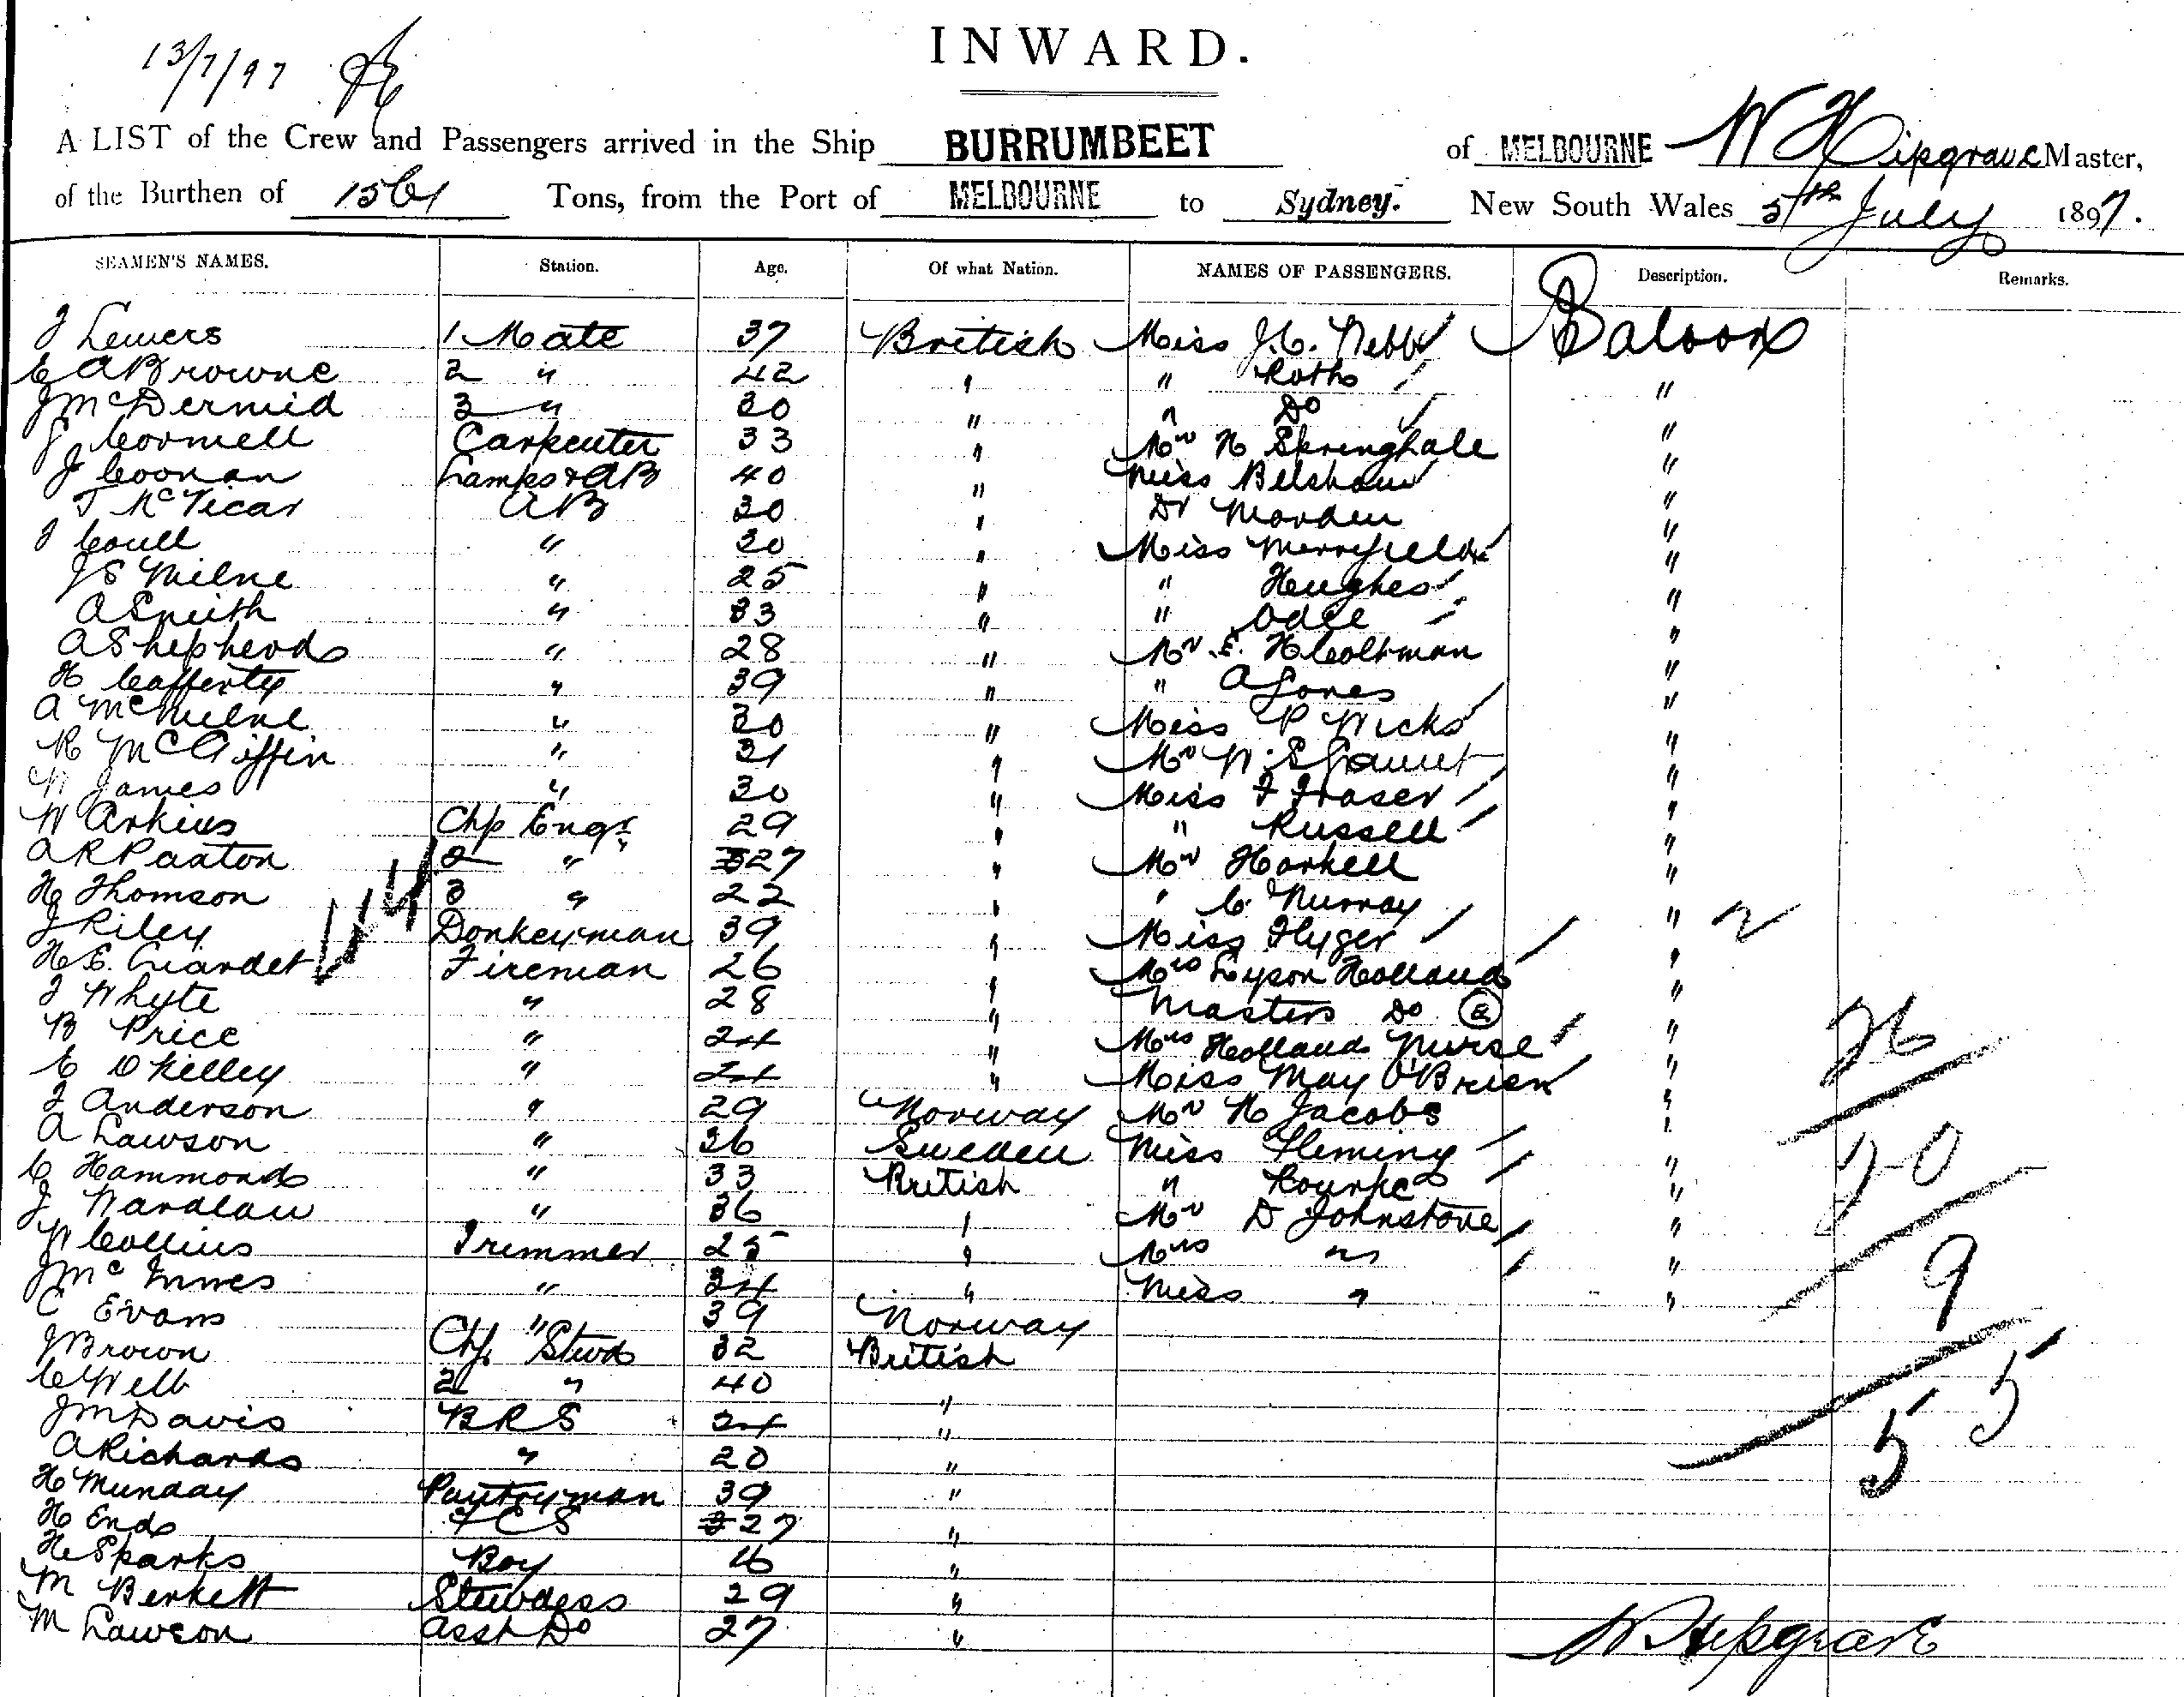 INWARD.
13/7/97
A LIST of the Crew and Passengers arrived in the Ship BURRUMBEET of MELBOURNE W Hipgrave Master,
of the Burthen of Tons, from the Port of MELBOURNE to Sydney. New South Wales 5th July 1897.
SEAMEN'S NAMES. Station. Age. Of what Nation. NAMES OF PASSENGERS. Description. Remarks.
J Lewers 1 Mate 37 British Miss J.C. Webb Saloon
E A Browne 2 " 42 " " Roths "
J McDermid 3 " 30 " " Do "
J Cormell Carpenter 33 " Mr H Springhale "
J Coonan Lamps & AB 40 " Miss Belshaw "
T McVicar AB 30 " Dr Morden "
J Coull " 30 " Miss Merryfield "
J S Milne " 25 " " Hughes "
A Smith " 33 " " Odee "
A Shepherd " 28 " Mr E. H Coltman "
H Cafferty " 39 " " A Jones "
A McMilne " 30 " Miss P Wicks "
R McGiffin " 31 " Mr W. S "
W James " 30 " Miss F Fraser "
W Arkins Chf Engr 29 " " Russell "
A R Paxton 2 " 27 " Mr Horkell "
H Thomson 3 " 22 " " C. Murray "
J Riley Donkeyman 39 " Miss Flyger "
H E. Fireman 26 " Mrs Lyson Holland "
J Whyte " 28 " Masters Do 2 "
B Price " 24 " Mrs Holland Nurse " 26
C O Kelley " 24 " Miss May O'Brien "
J Anderson " 29 Norway Mr H Jacobs "
A Lawson " 26 Sweden Miss Fleming " 20
C Hammond " 33 British " Rourke "
J Wardlaw " 36 " Mr D Johnstone "
W Collins Trimmer 25 " Mrs " " 9
J McInnes " 34 " Miss " "
C Evans " 39 Norway
J Brown Chf Stwd 32 British
C Webb 2 " 40 " 55
J M Davis BRS 24 "
A Richards " 20 "
H Munday Pantryman 39 "
H Ends FCS 27 "
H Sparks Boy 16 "
M Berkett Stewdess 29 "
M Lawson Asst Do 27 "
W Hipgrave